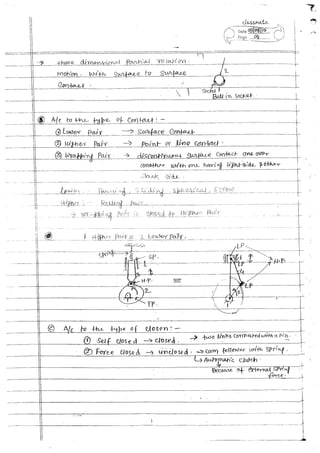 classmate
Date
Page
→ three dimensional Partial rotation
motion. With Surface to Surface
Contact.
2
Socket 1
Ball in socket.
Ⓑ A/c to the type of Contact :-
① Lower Pair → Surface Contact
② Higher Pair → Point or line contact.
③ Wrapping Pair → discontinuous surface Contact one over
another with one having tight-side & other
slack side.
Lower : Turning, Sliding, spherical, Screw
Higher : Rolling
→ Wrapping Pair is closed to Higher Pair
1 Higher Pair = 2 Lower Pair.
Spring
SP.
1
H.P.
2
TP.
L.P.
L.P
4
H.P.
LP
Ⓒ A/c to the type of closen :-
① Self closed → closed. → two links connected with a pin.
② Force closed → unclosed. → Cam follower with spring.
↳ Automatic clutch
Because of external spring
force.